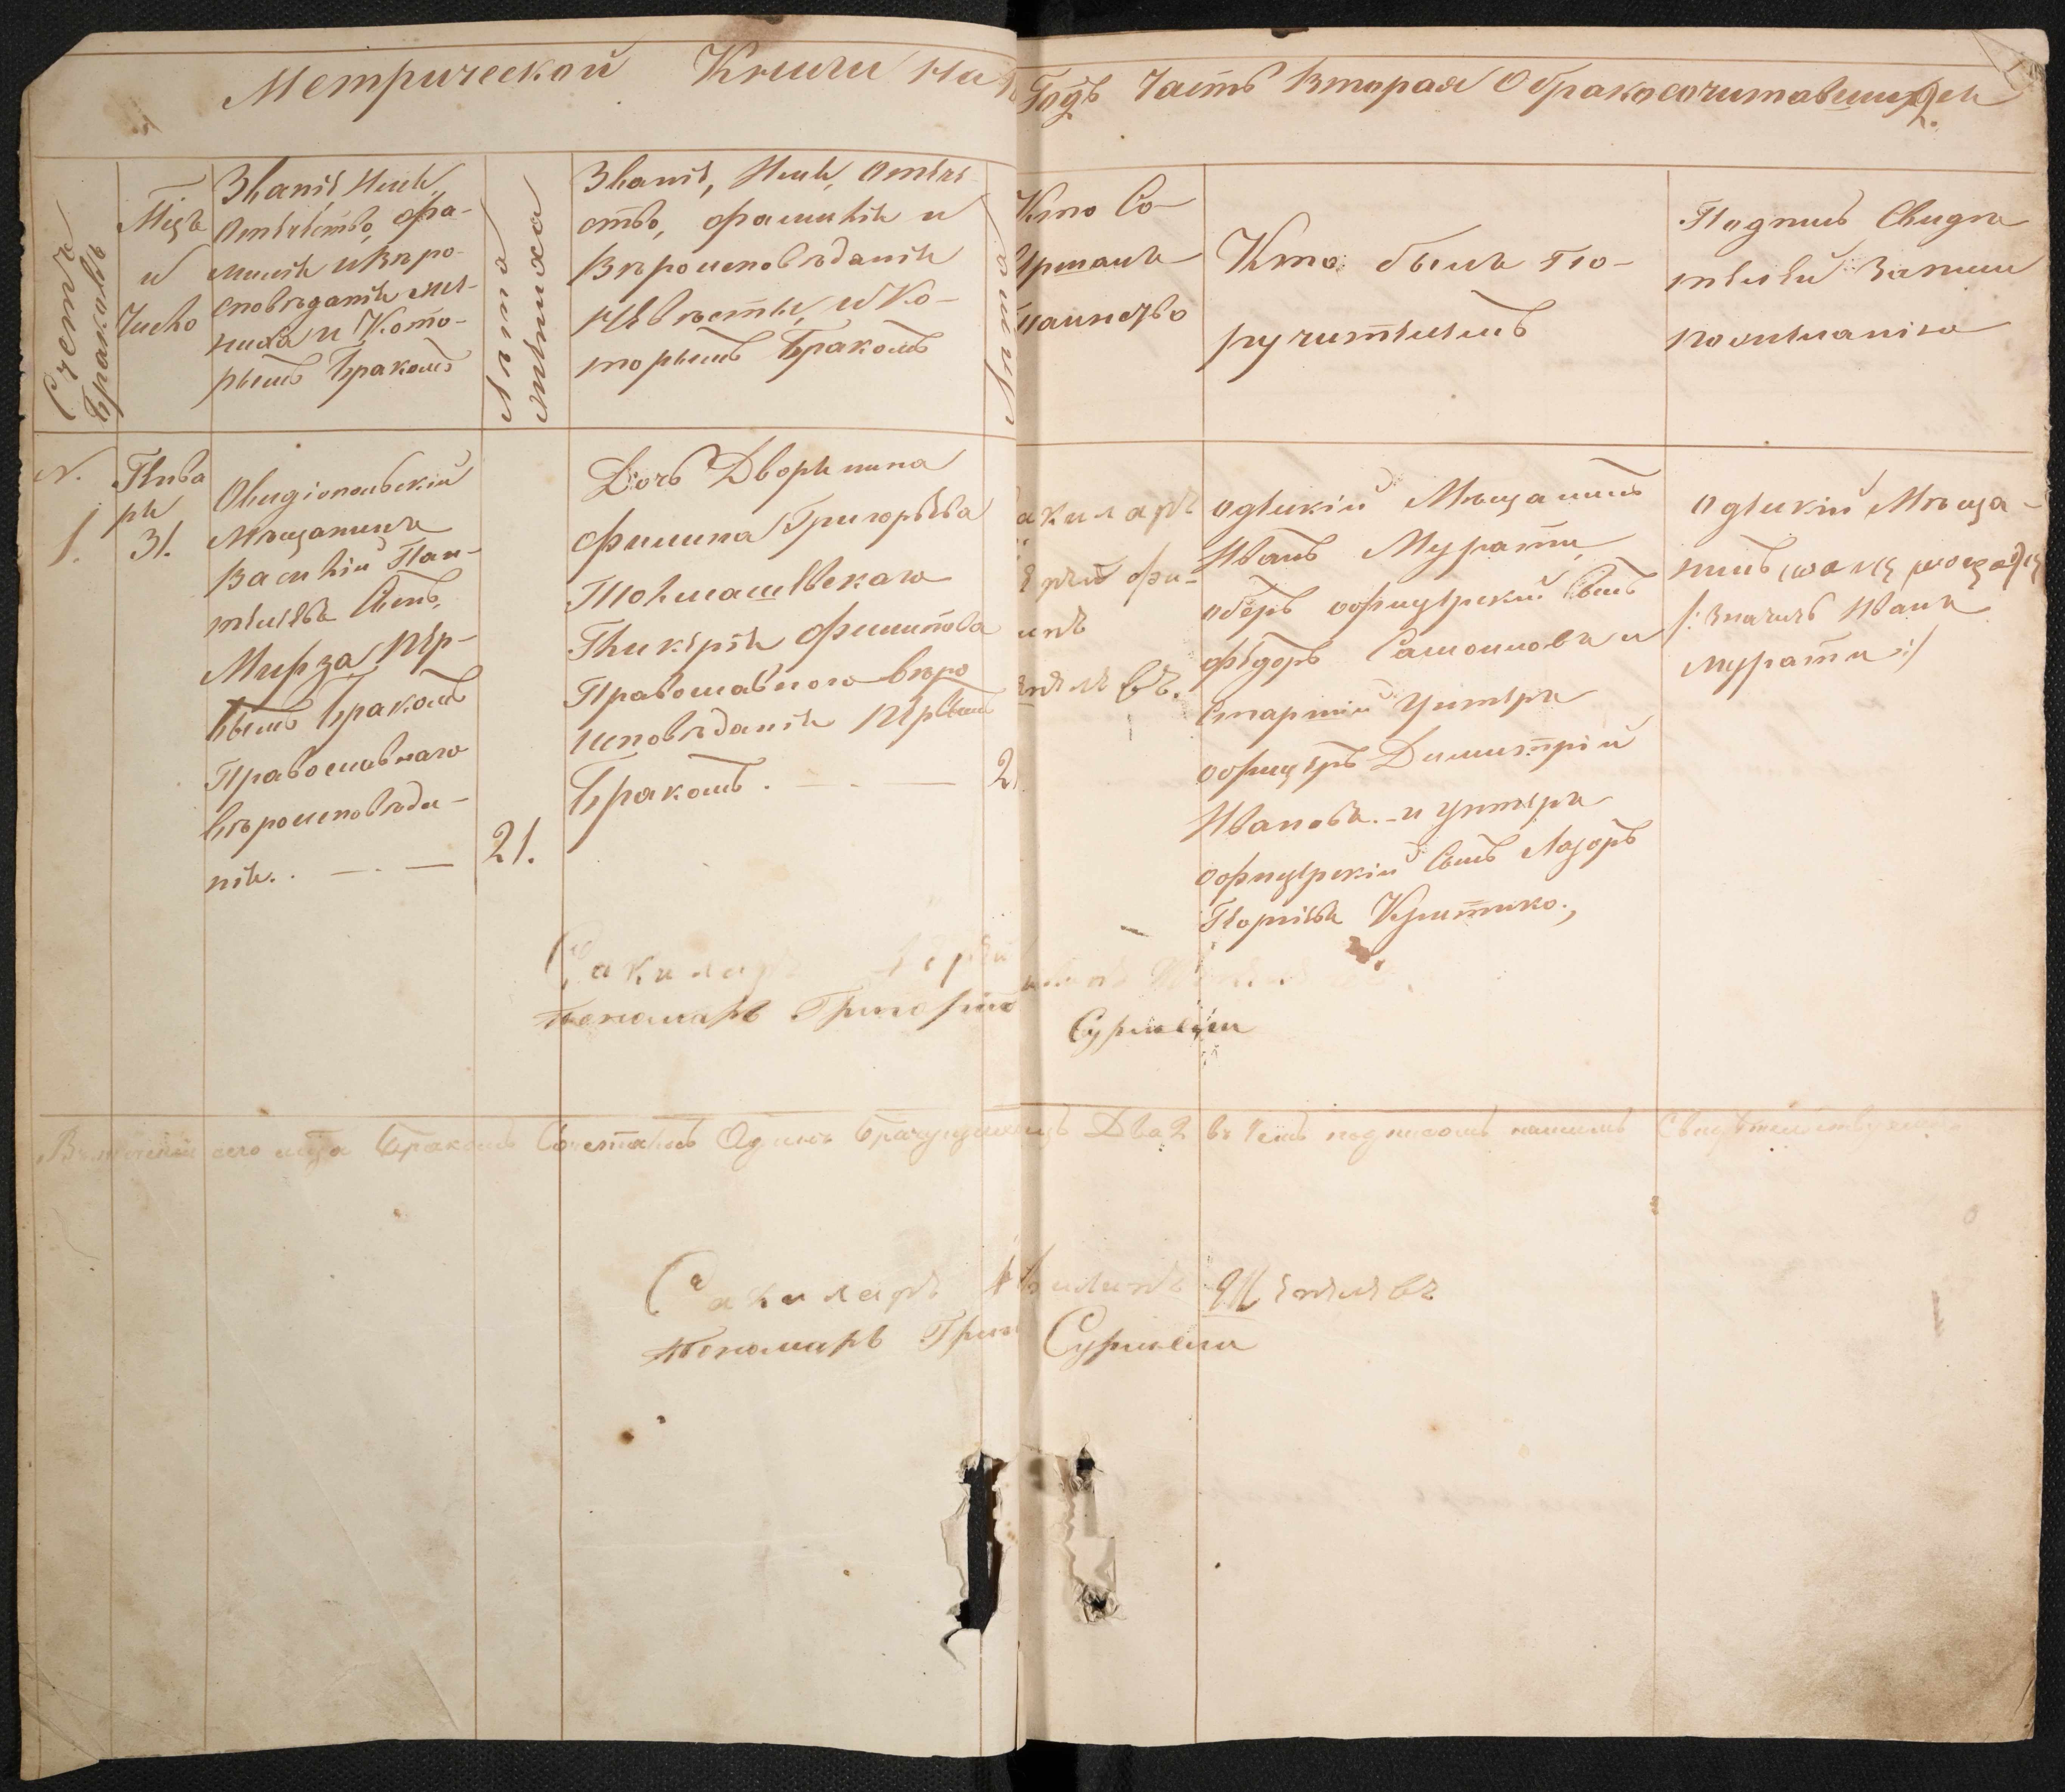 Метрической Книги на
Годъ Часть Вторая О бракосочитавшихся
2.
Счетъ
Браковъ
Мцъ
и
Число
Званіе, Имя,
Отечество, фа-
милія и вѣро-
споведаніе же-
ниха и Кото-
рымъ Бракомъ
Лѣта
жениха
Званіе, Имя, Отече-
ство, фамилія и
Вѣроисповѣданіе
Невѣсты, и Ко-
торымъ Бракомъ
Лѣта
Кто Со-
вершалъ
Таинство
Кто былъ По-
ручителемъ
Подпись Свиде
телей Записи
по желанію
N.
1.
Генва
ря
31.
Овидіопольскій
Мѣщанинъ
Василій Пан-
телеевъ Сынъ,
Мирза, пер-
вымъ Бракомъ
Православнаго
вѣроисповѣда-
нія.
21.
Дочь Дворянина
Филипа Григорьева
Гликерія Филипова
Православного вѣро
исповѣданія первымъ
Бракомъ.
2
акиларъ
ерей фи-
ипъ
Одескій Мѣщанинъ
Иванъ Мурати,
оберъ офицерскій Сынъ
Федоръ Самоиловъ и
Старшій Унтеръ
офицеръ Димитрій
Ивановъ. и унтеръ
офицерскій Сынъ Лазорь
Критико.,
Одескій Мѣща-
нинъ
/: значитъ Иванъ
Мурати :/
Сакиларъ Іерей
пономарь Григорій
Сужен­
Въ сего мца Бракомъ Сочетался Одинъ Два 2 въ чемъ подписомъ нашимъ Свидетельствуемъ
Сакиларъ Филипъ
пономарь Григ